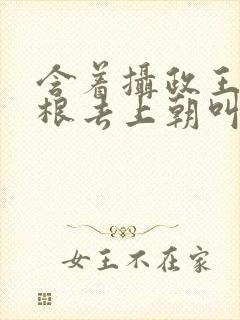 含着攝政王
根去上朝叫
女王不在家